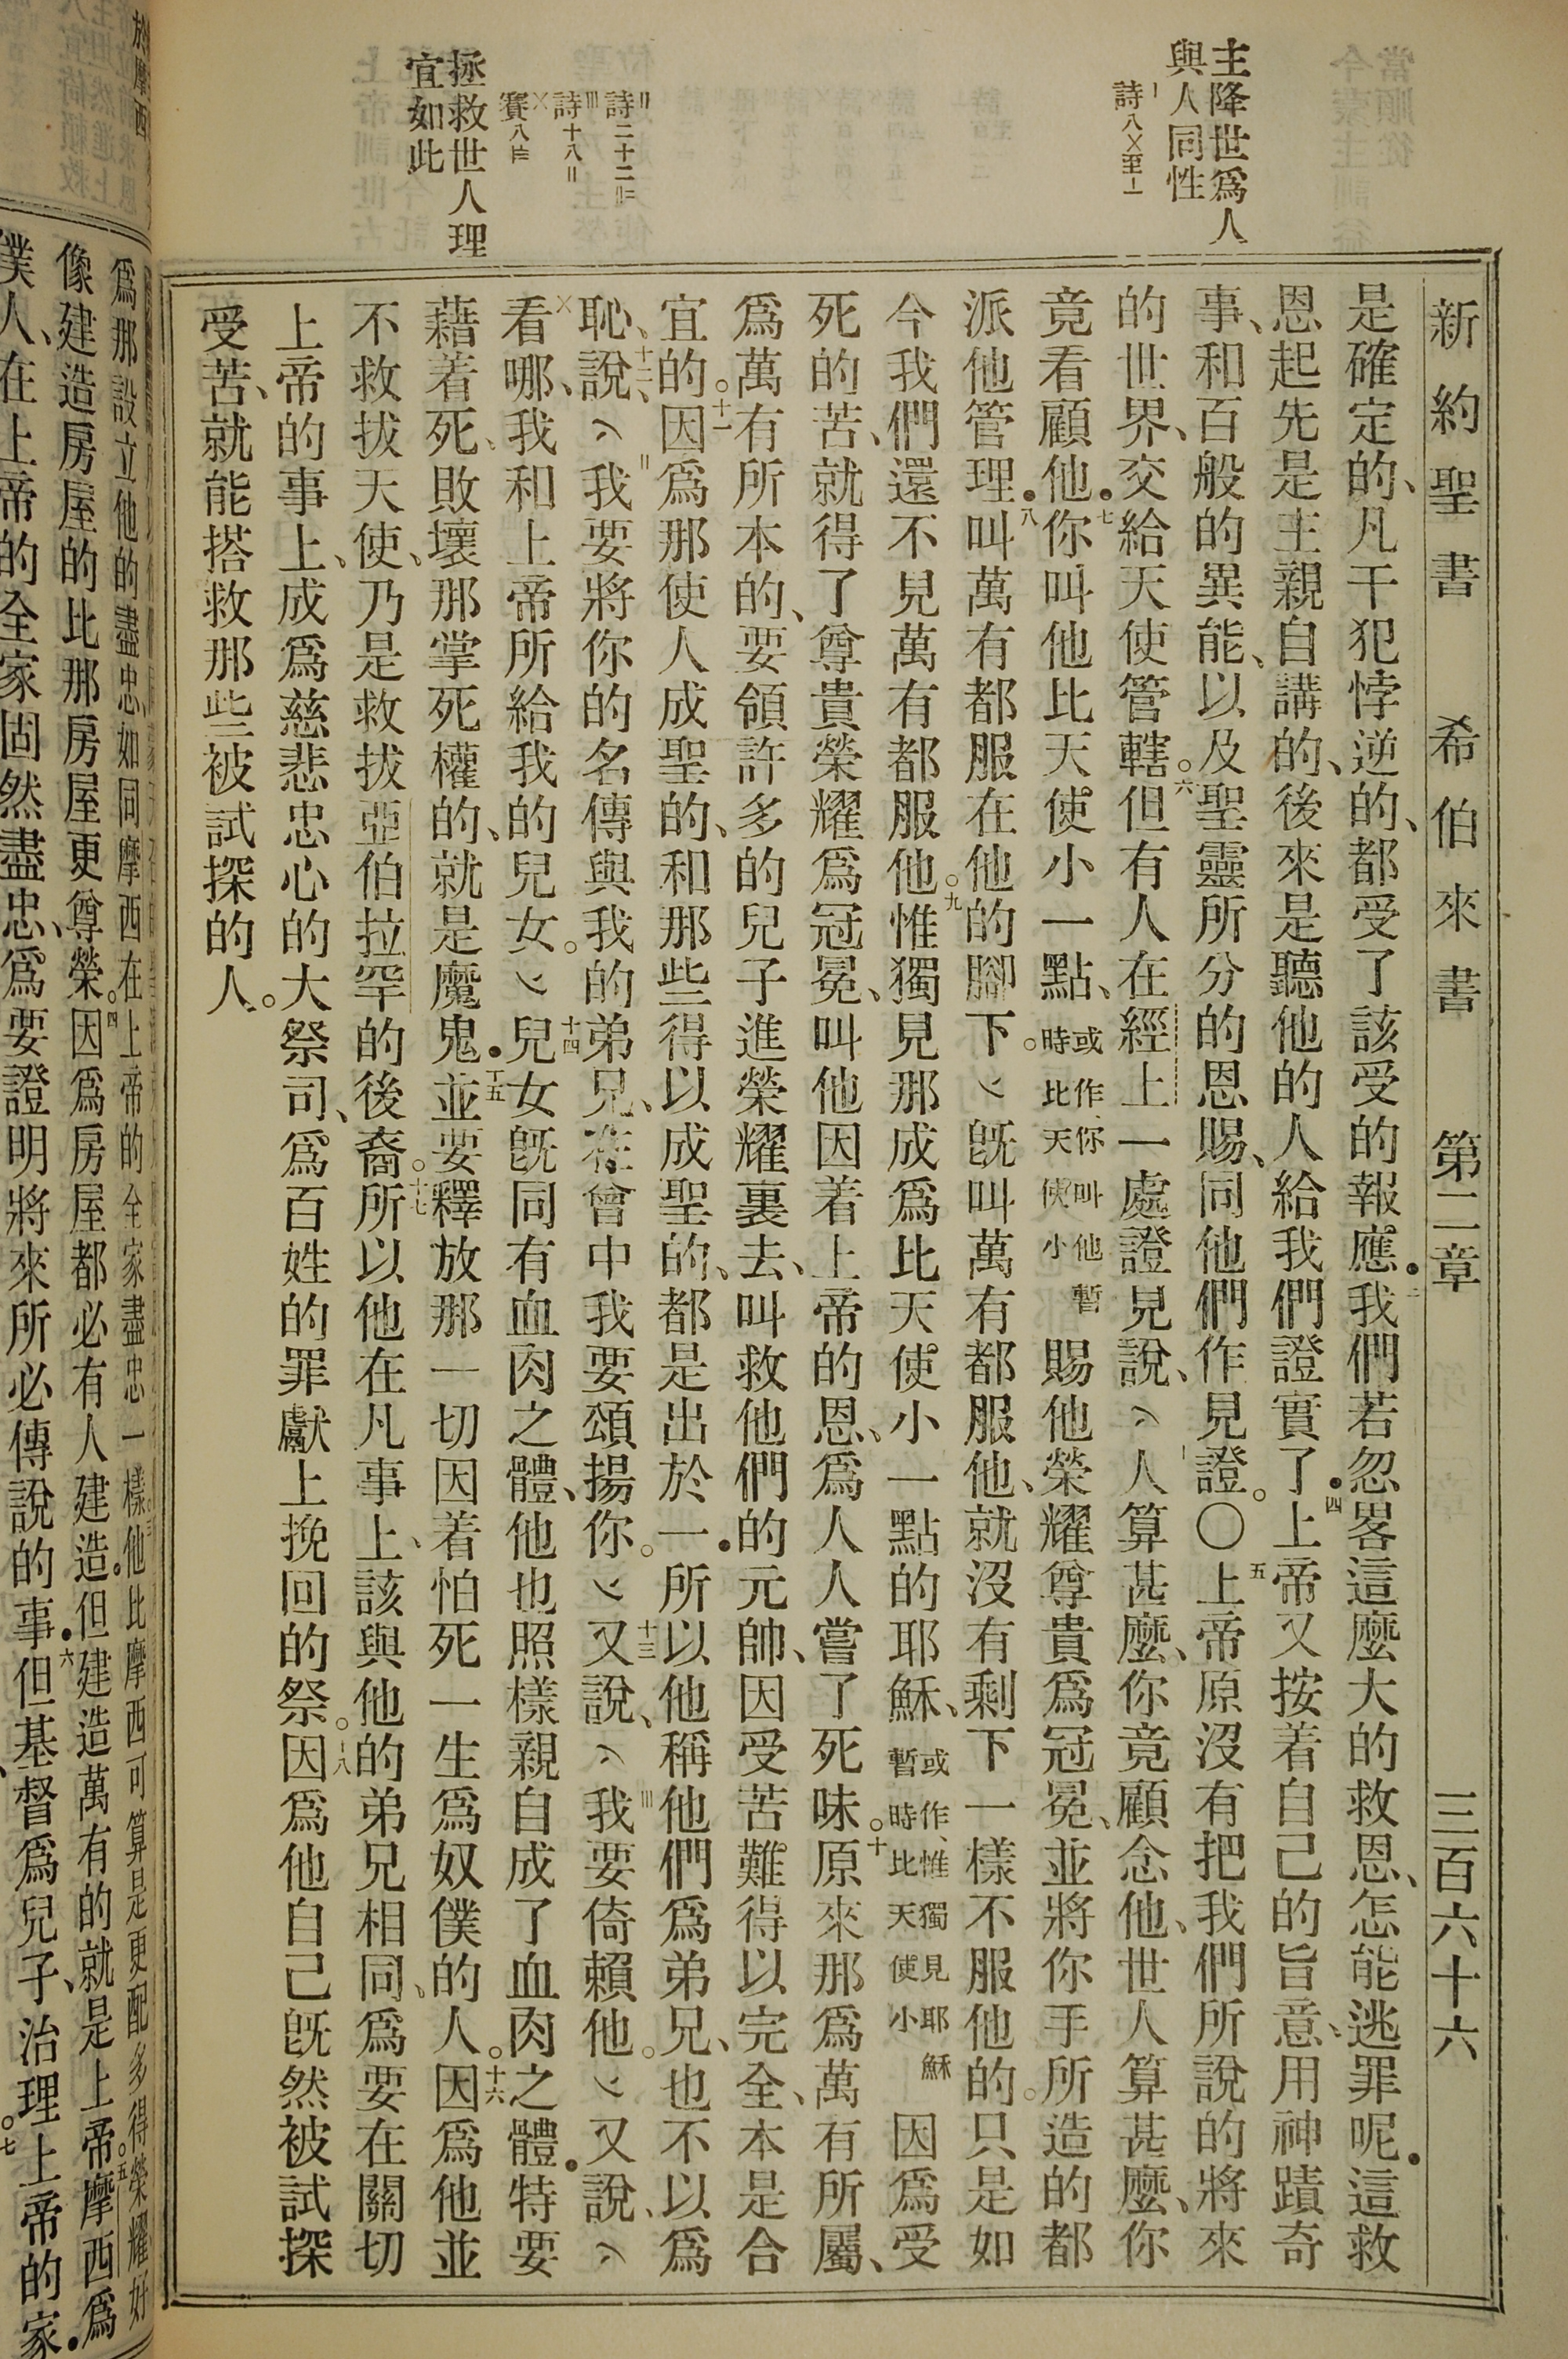 新約聖書　希伯來書　第二章　三百六十六
主降世爲人
與人同性
詩八〤至〦
詩二十二〢〣
詩十八〢
賽八
拯救世人理
宜如此
是確定的、凡干犯悖逆的、都受了該受的報應。三我們若忽畧這麼大的救恩、怎能逃罪呢。這救
恩起先是主親自講的、後來是聽他的人給我們證實了。四上帝又按着自己的旨意、用神蹟奇
事、和百般的異能、以及聖靈所分的恩賜、同他們作見證。○五上帝原沒有把我們所說的將來
的世界、交給天使管轄。六但有人在經上一處證見說、人算甚麼、你竟顧念他、世人算甚麼、你
竟看顧他。七你叫他比天使小一點、或作、你叫他暫時比天使小賜他榮耀尊貴爲冠冕、並將你手所造的都
派他管理。八叫萬有都服在他的腳下。旣叫萬有都服他、就沒有剩下一樣不服他的。只是如
今我們還不見萬有都服他。九惟獨見那成爲比天使小一點的耶穌、或作、惟獨見耶穌暫時比天使小因爲受
死的苦、就得了尊貴榮耀爲冠冕、叫他因着上帝的恩、爲人人嘗了死味。十原來那爲萬有所屬、
爲萬有所本的、要領許多的兒子進榮耀裏去、叫救他們的元帥、因受苦難得以完全、本是合
宜的。十一因爲那使人成聖的、和那些得以成聖的、都是出於一。所以他稱他們爲弟兄、也不以爲
恥、十二說、我要將你的名傳與我的弟兄、在會中我要頌揚你。十三又說、我要倚賴他。又說、
看哪、我和上帝所給我的兒女。十四兒女旣同有血肉之體、他也照樣親自成了血肉之體。特要
藉着死、敗壞那掌死權的、就是魔鬼。十五並要釋放那一切因着怕死一生爲奴僕的人。十六因爲他並
不救拔天使、乃是救拔亞伯拉罕的後裔。十七所以他在凡事上、該與他的弟兄相同、爲要在關切
上帝的事上、成爲慈悲忠心的大祭司、爲百姓的罪獻上挽回的祭。十八因爲他自己旣然被試探
受苦、就能搭救那些被試探的人。
爲那設立他的盡忠、如同摩西在上帝的全家盡忠一樣。三他比摩西可算是更配多得榮耀、好
像建造房屋的比那房屋更尊榮。四因爲房屋都必有人建造。但建造萬有的就是上帝。五摩西爲
僕人、在上帝的全家固然盡忠、爲要證明將來所必傳說的事。六但基督爲兒子、治理上帝的家。七